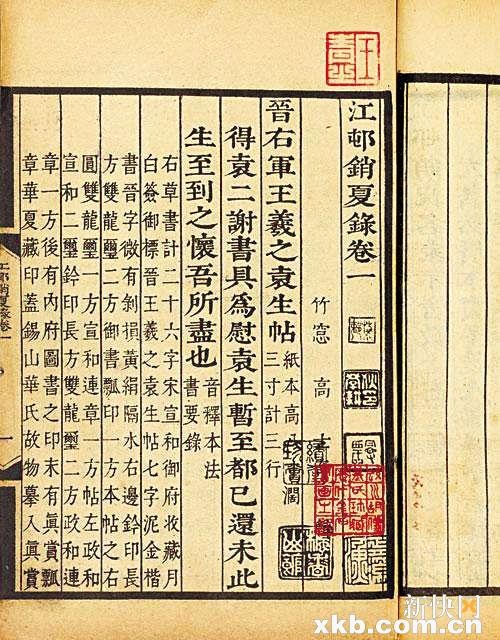 江邨銷夏錄卷一
竹窻 高
晉右軍王羲之袁生帖
紙本高
闊
三寸計三行
得袁二謝書具爲慰袁生暫至都已還未此
生至到之懷吾所盡也
音釋本法
書要錄
右草書計二十六字宋宣和御府收藏月
白簽御標晉王羲之袁生帖七字泥金楷
書晉字微有剝損黃絹隔水右邊鈐印長
方雙龍璽二方御書瓢印一方本帖之右
圓雙龍璽一方宣和連章一方帖左政和
宣和二璽鈐印長方雙龍璽二方政和連
章一方後有內府圖書之印末有眞賞瓢
章華夏藏印蓋錫山華氏故物摹入眞賞
江邨銷夏錄卷一
一
新快网
xkb.com.cn